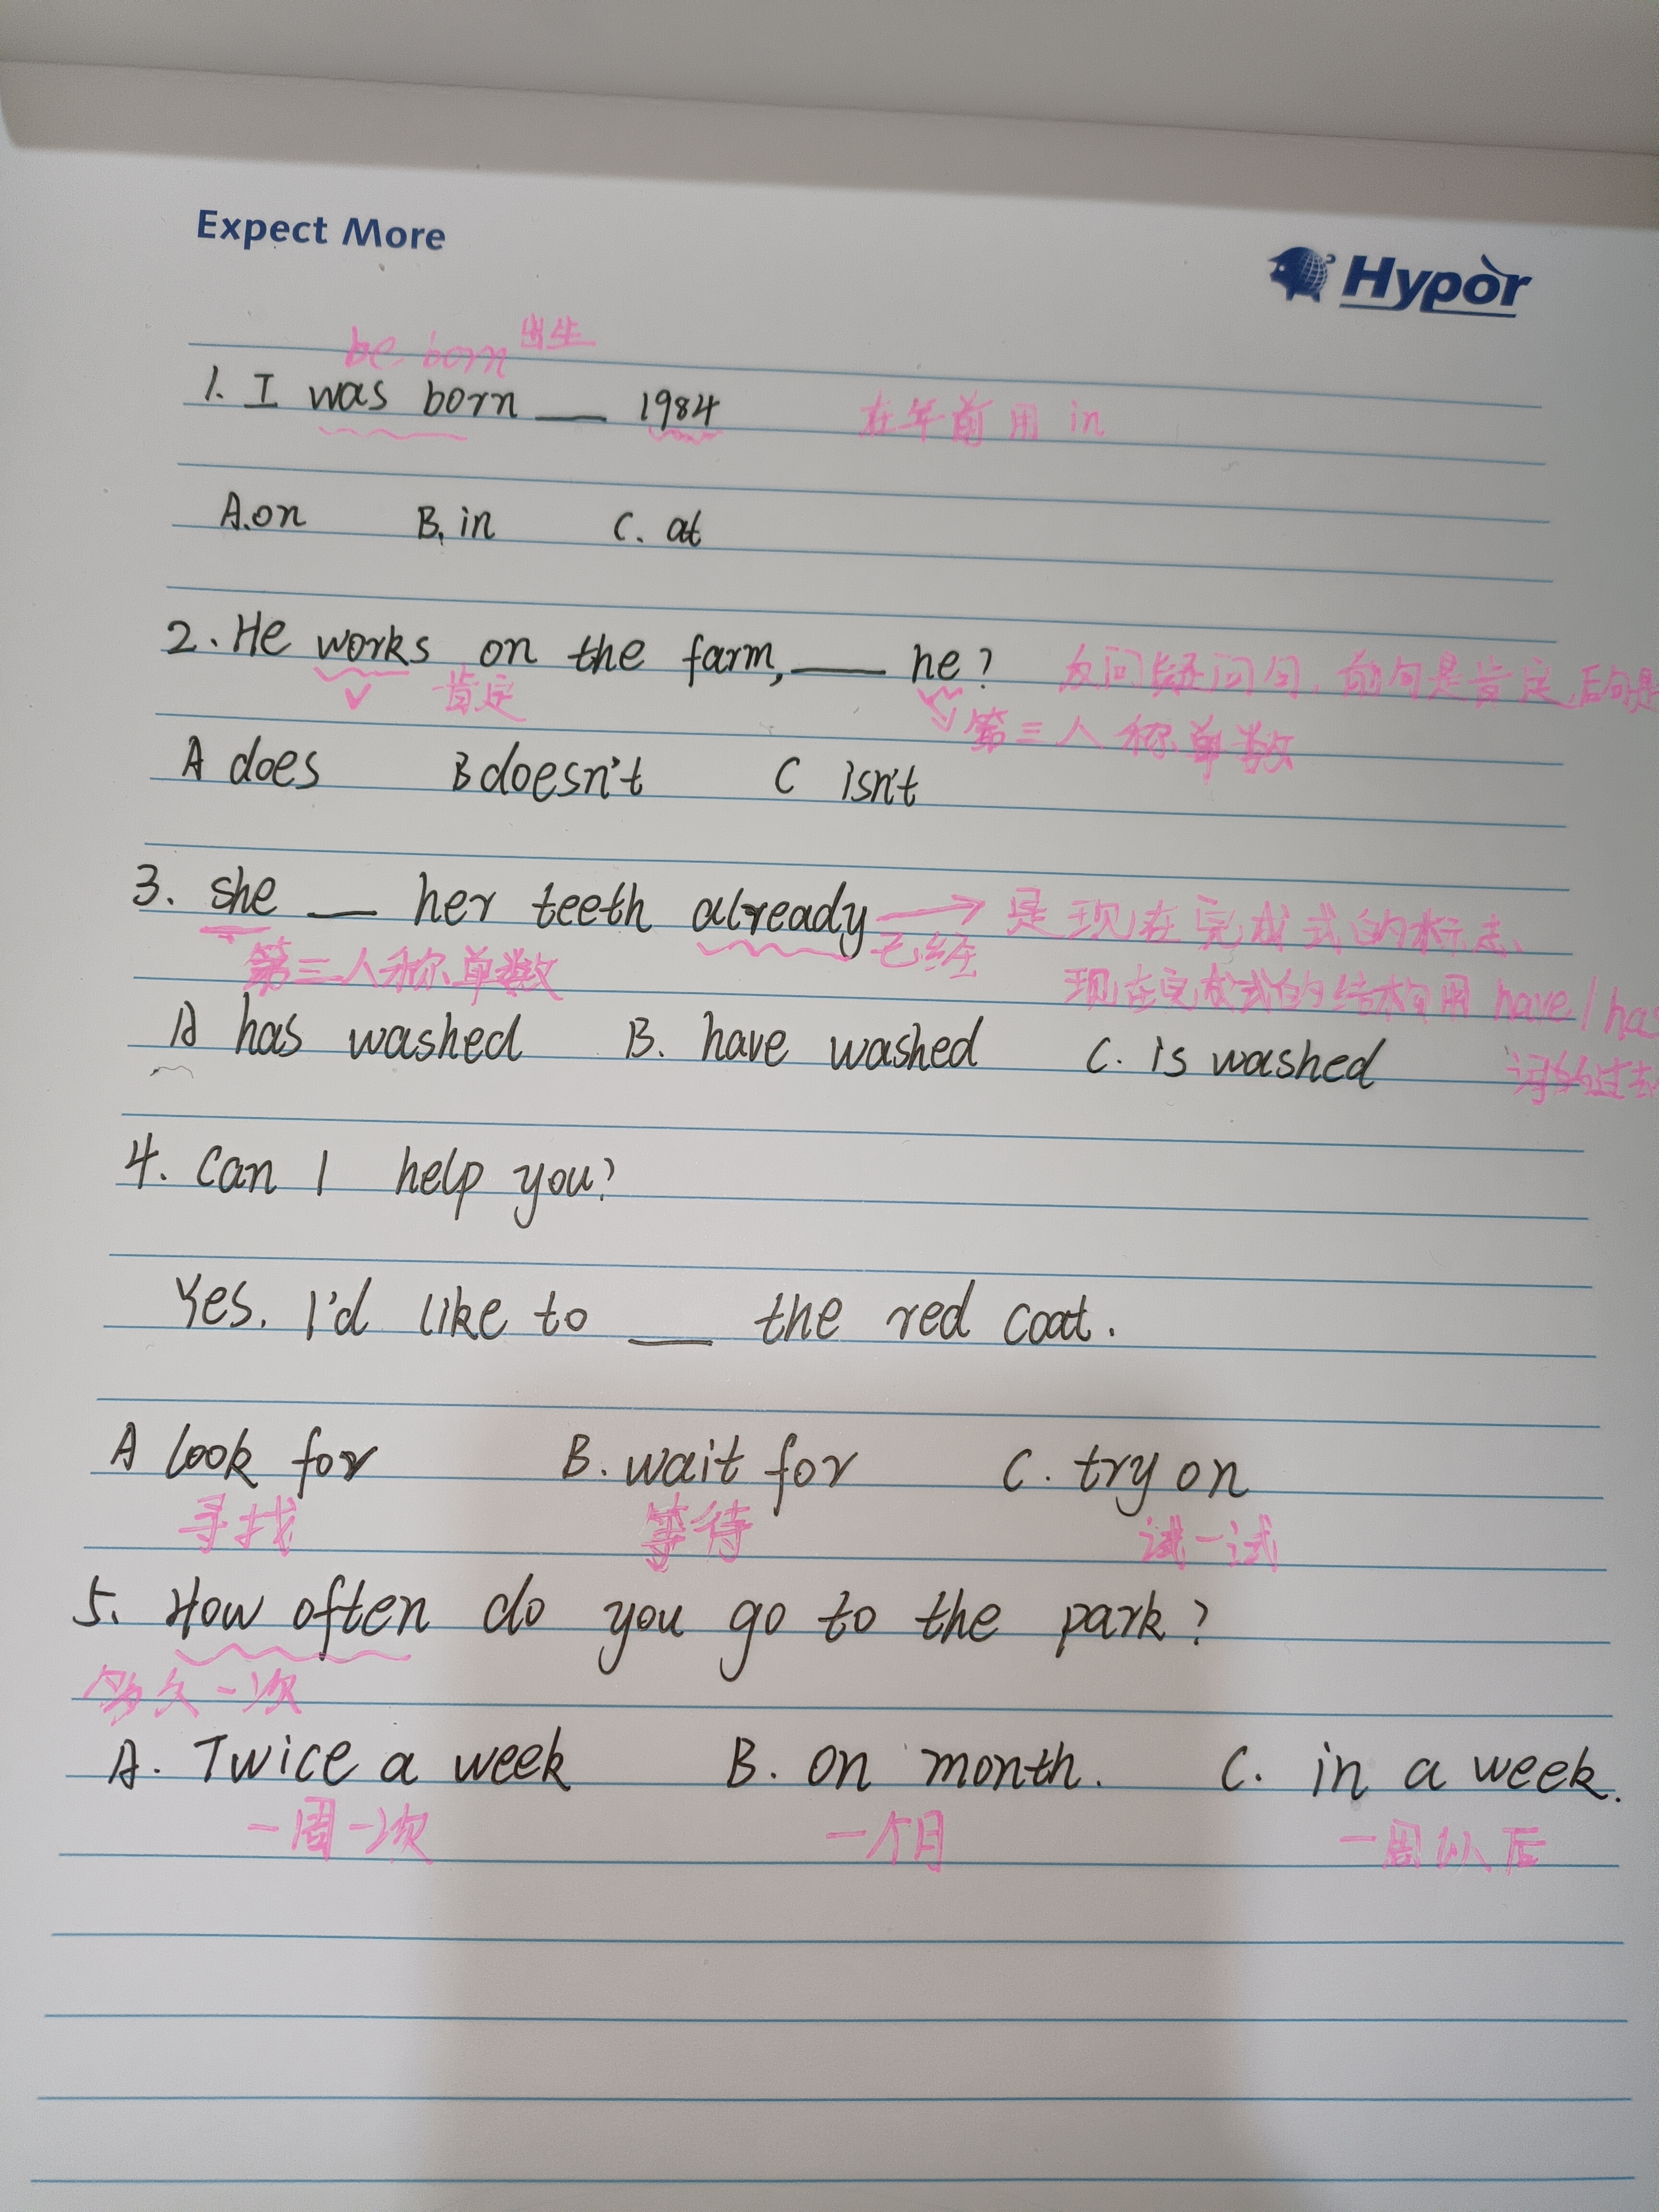 Expect More
Hypor
be born 出生
1. I was born __ 1984 在年前用 in
A.on B. in C. at
2. He works on the farm, __ he? 反问疑问句，前句是肯定，后句是
肯定 第三人称单数
A does B doesn't C isn't
3. she __ her teeth already → 是现在完成式的标志、
第三人称单数 已经 现在完成式的结构用 have/has
A has washed B. have washed C. is washed
词的过去
4. Can I help you?
Yes. I'd like to __ the red coat.
A look for B. wait for C. try on
寻找 等待 试一试
5. How often do you go to the park?
多久一次
A. Twice a week B. on month. C. in a week.
一周一次 一个月 一周以后